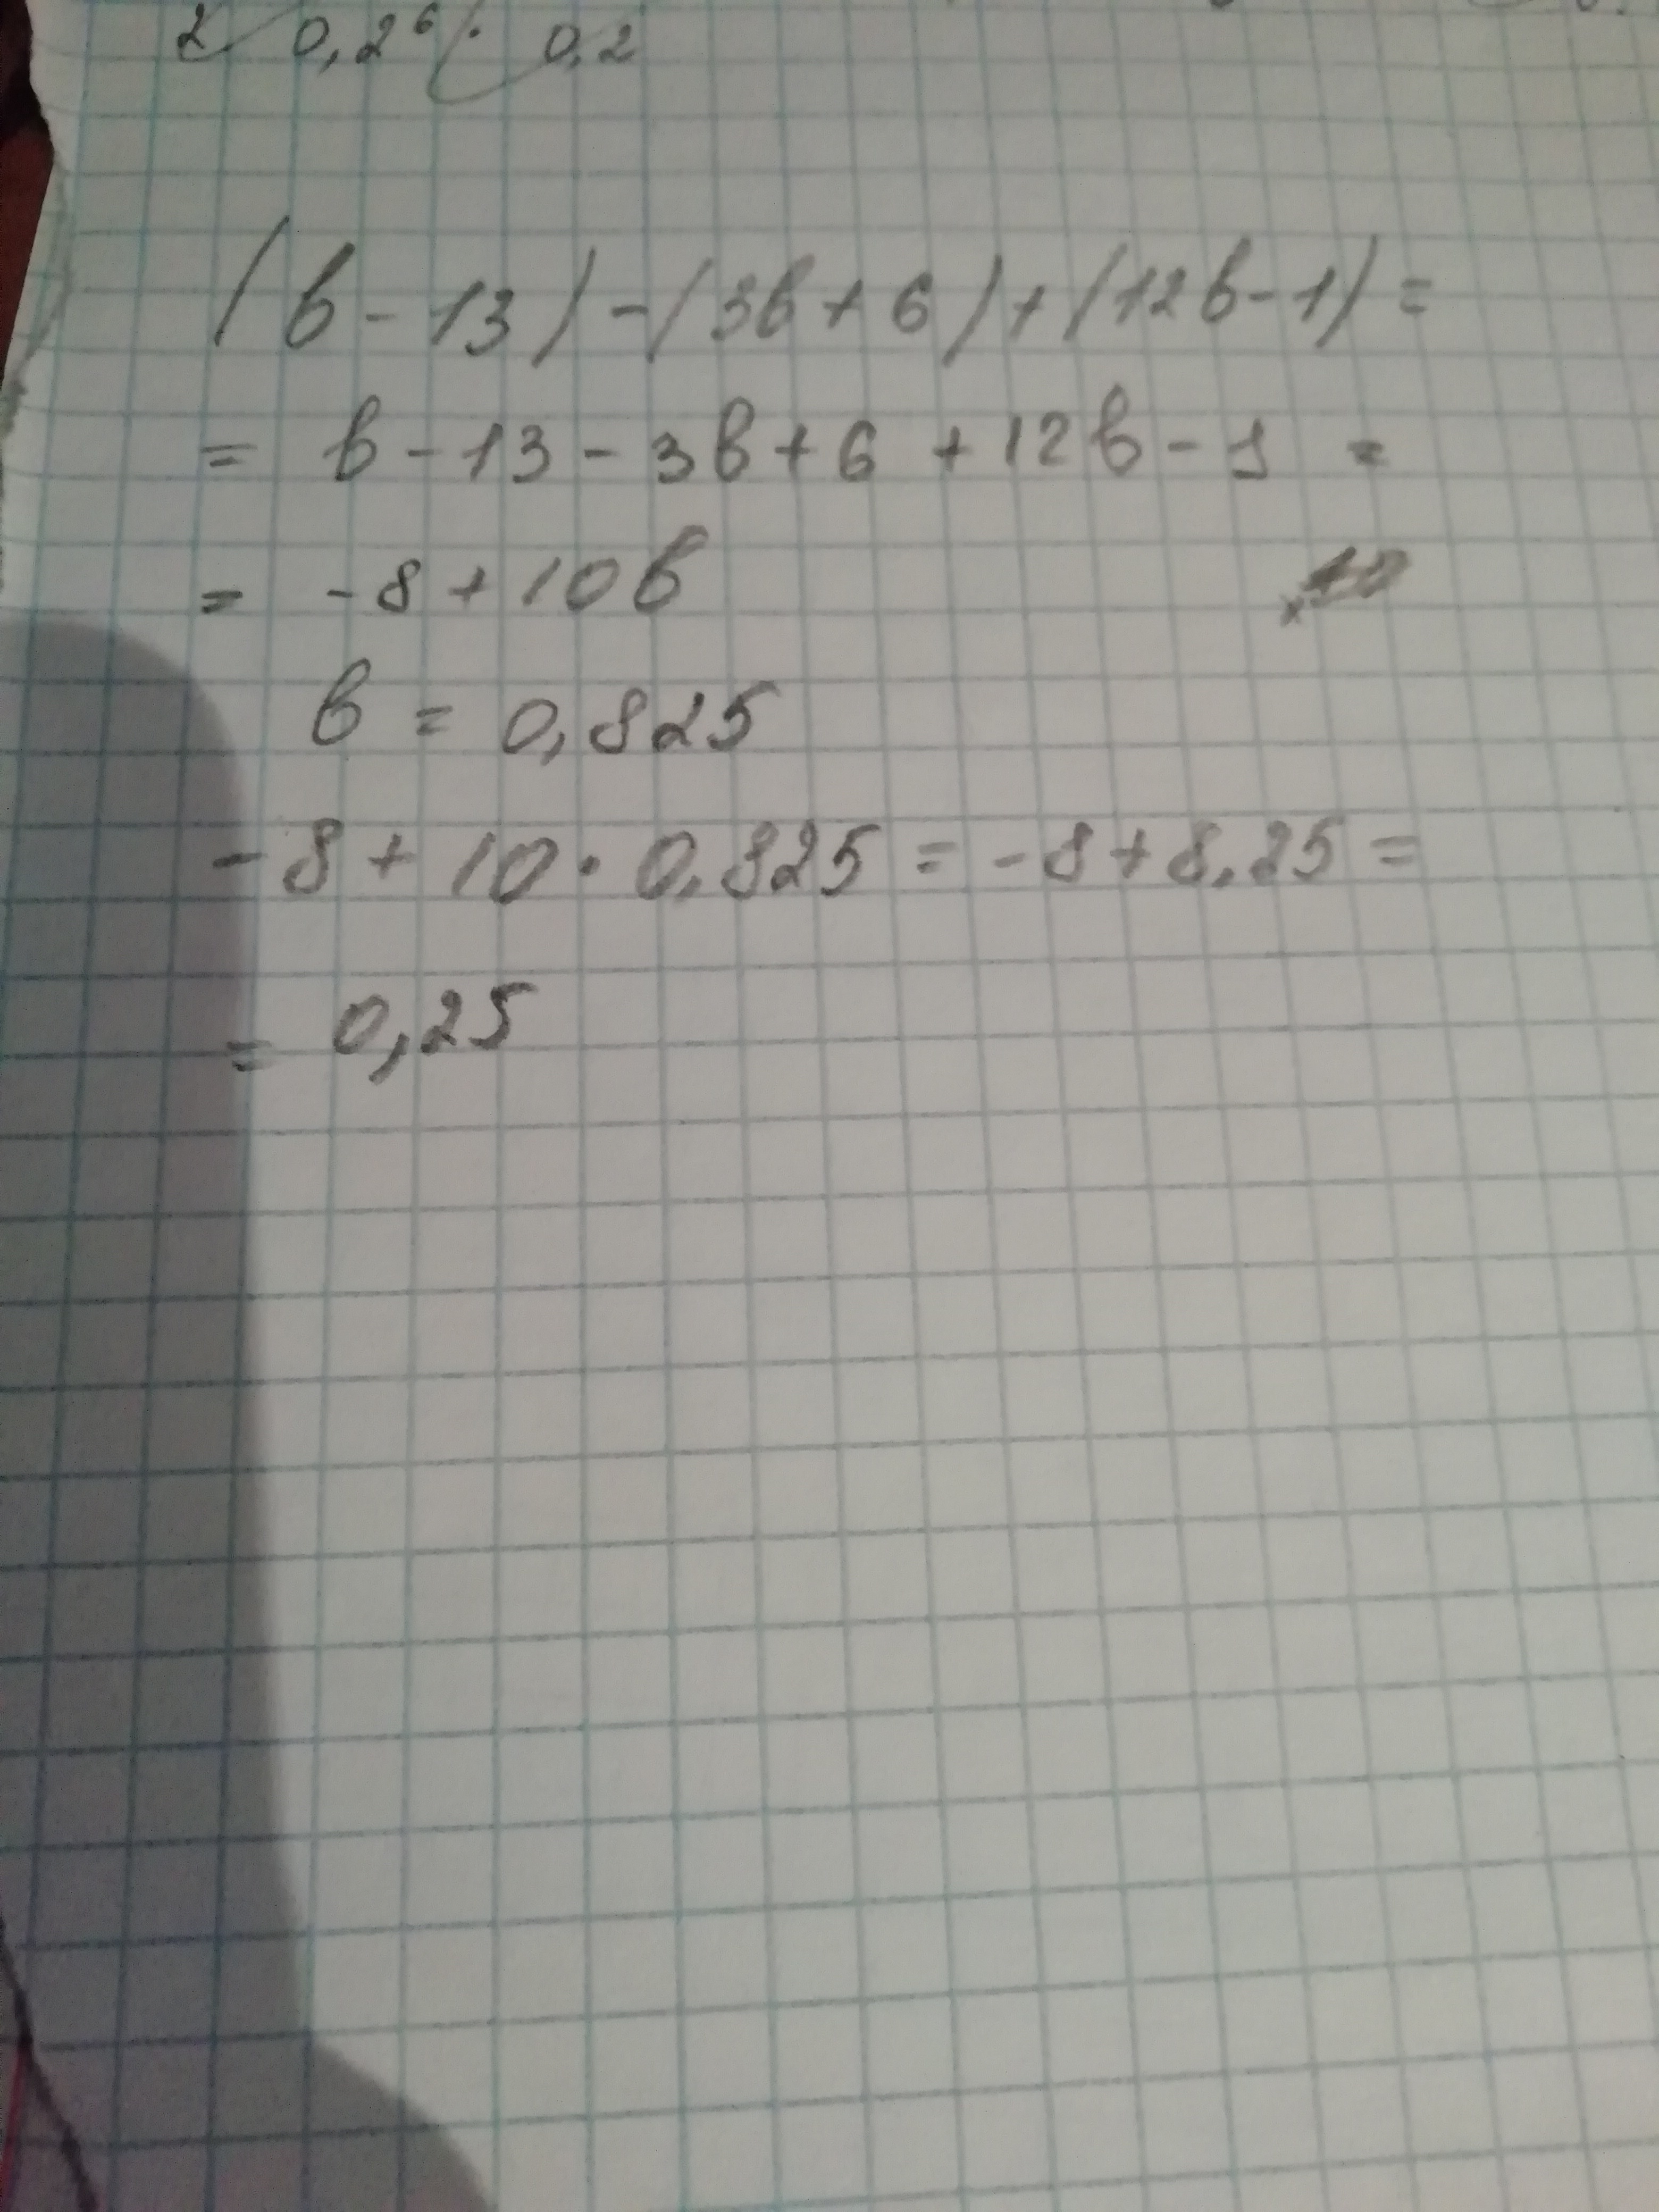 2 0,2⁶ · 0,2
(в - 13) - (3в + 6) + (12в - 1) =
= в - 13 - 3в + 6 + 12в - 1 =
= -8 + 10в
в = 0,825
-8 + 10 · 0,825 = -8 + 8,25 =
= 0,25